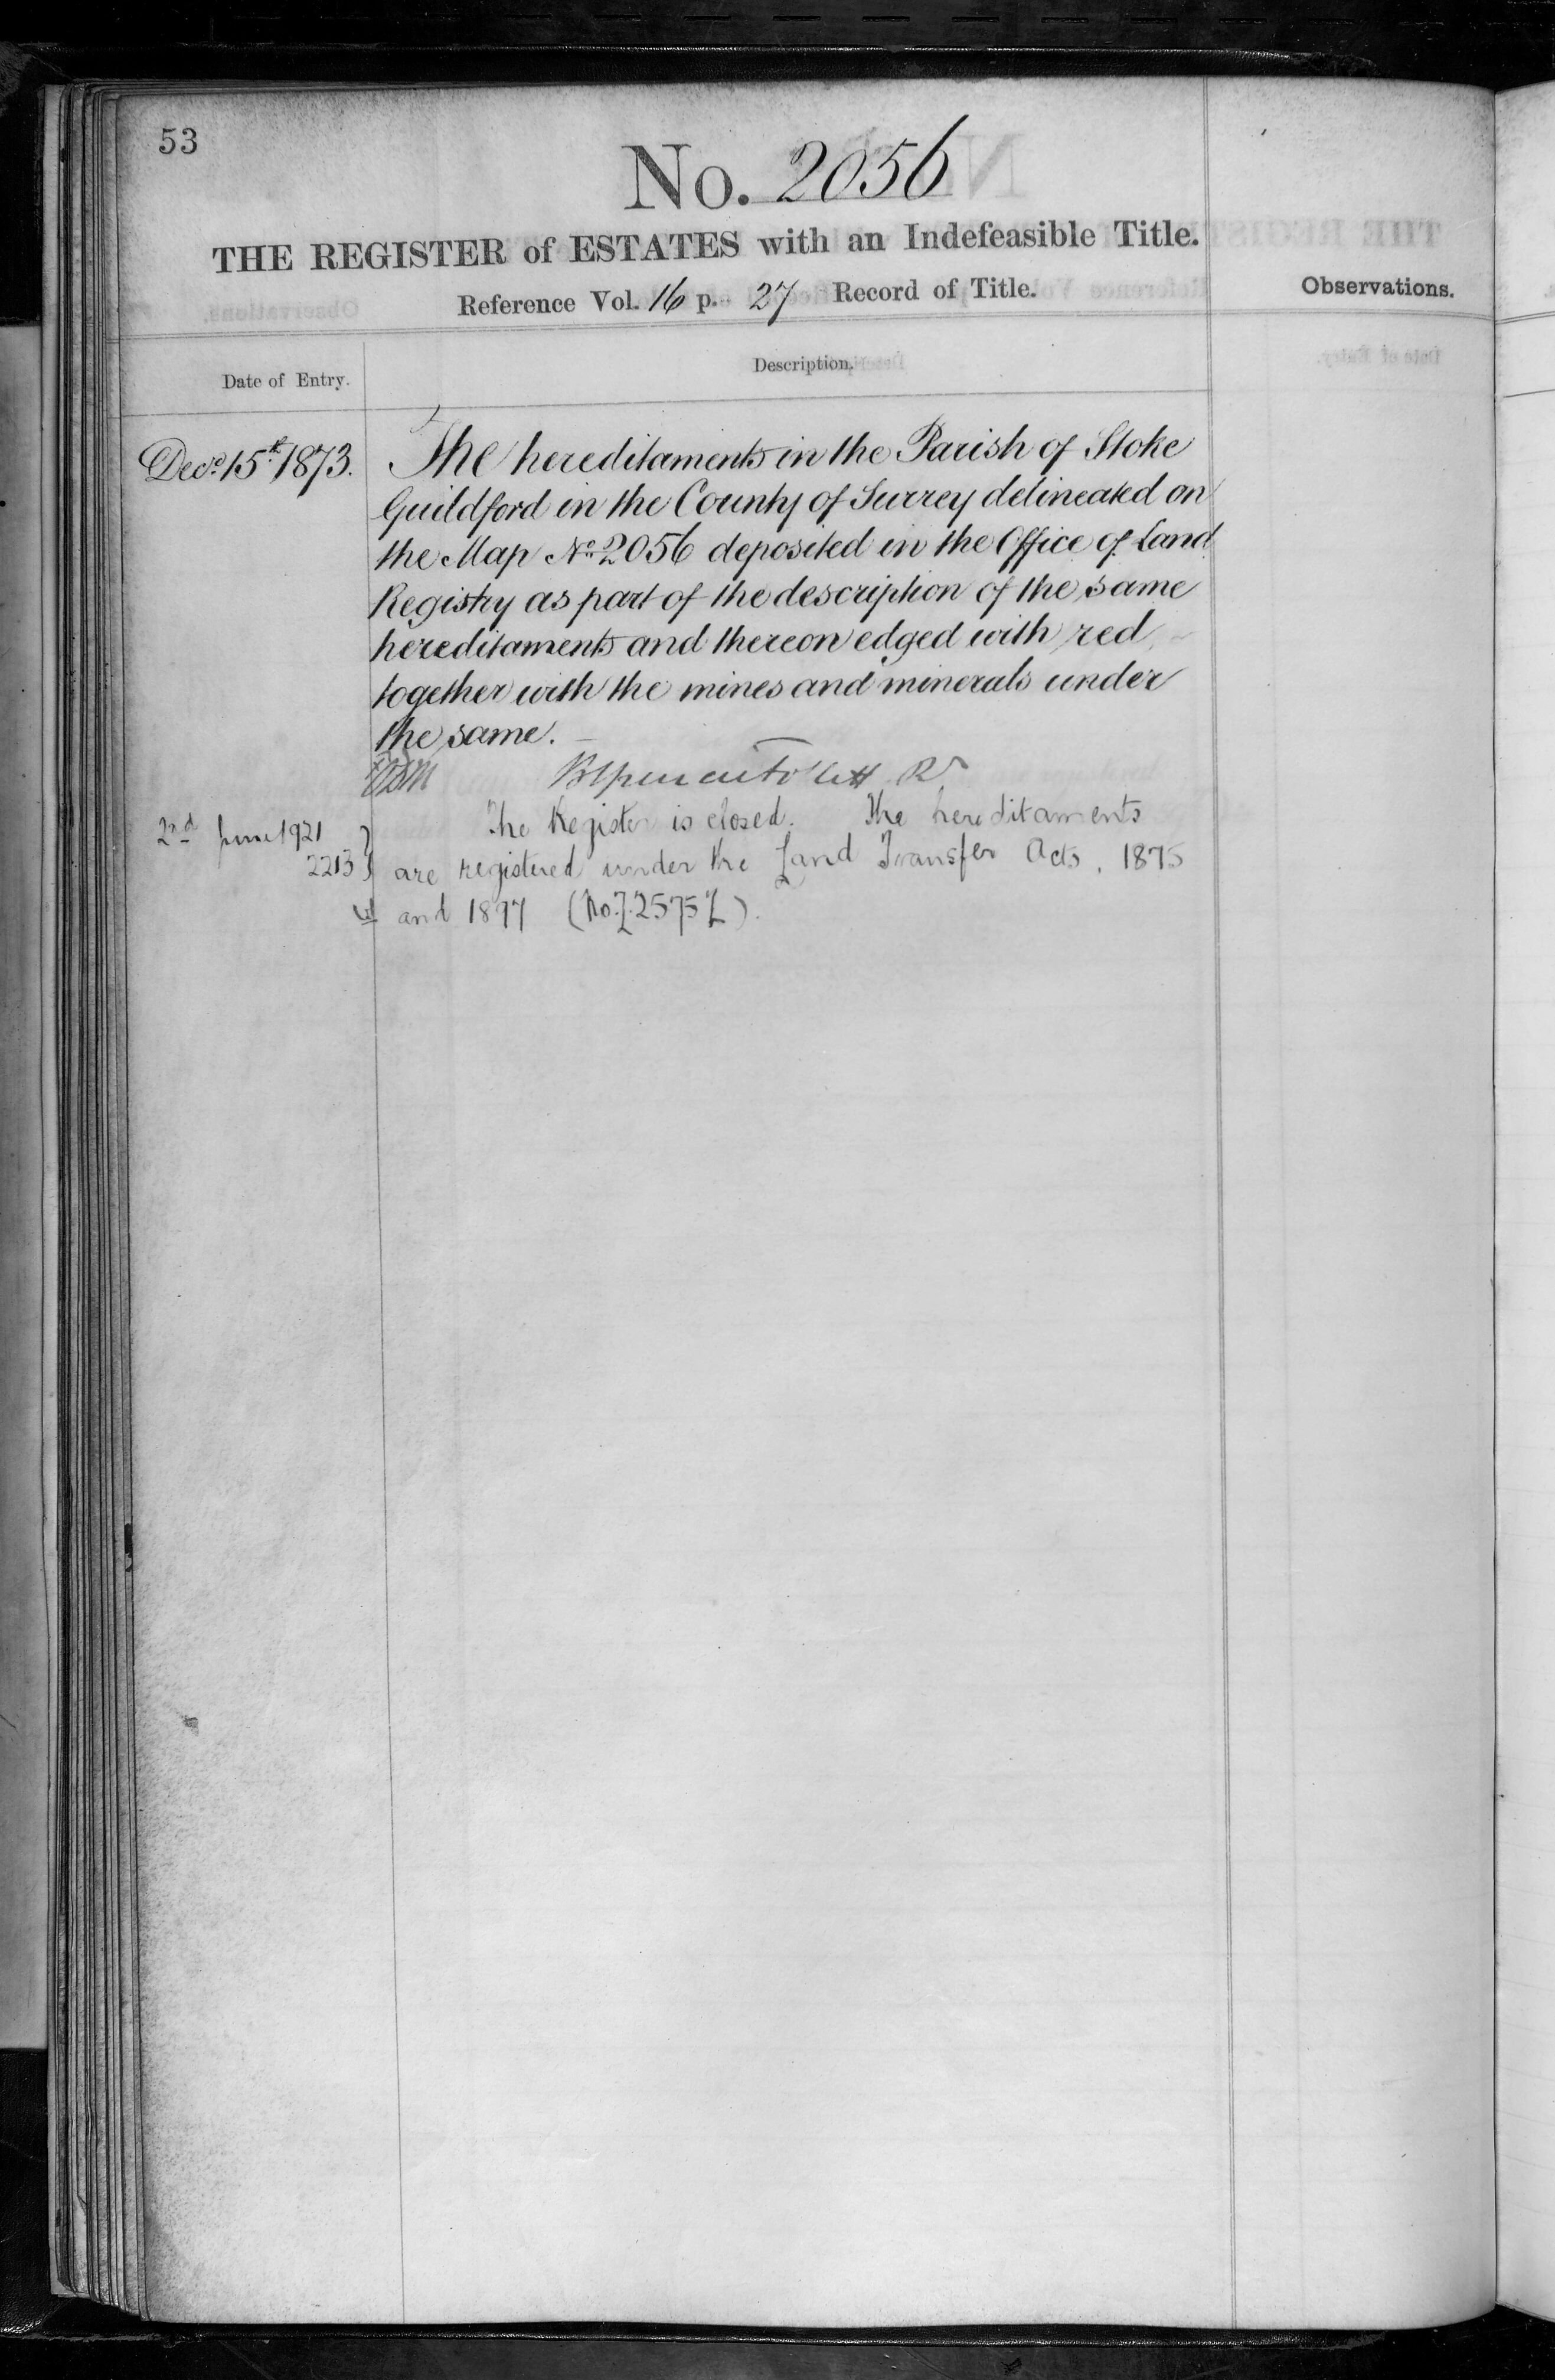 53
No. 2056
THE REGISTER of ESTATES with an Indefeasible Title.
Reference Vol. 16 p. 27 Record of Title.
Observations.
Date of Entry.
Description.
Decr. 15th 1873.
The hereditaments in the Parish of Stoke
Guildford in the County of Surrey delineated on
the Map No. 2056 deposited in the Office of Land
Registry as part of the description of the same
hereditaments and thereon edged with red
together with the mines and minerals under
the same.
2nd June 1921
2213
The Register is closed. The hereditaments
are registered under the Land Transfer Acts, 1875
and 1897